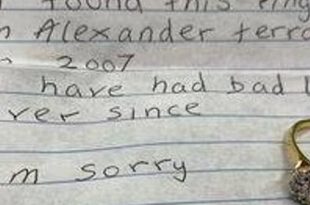 found this ring
Alexander terra
2007
have had bad
ver since
m sorry